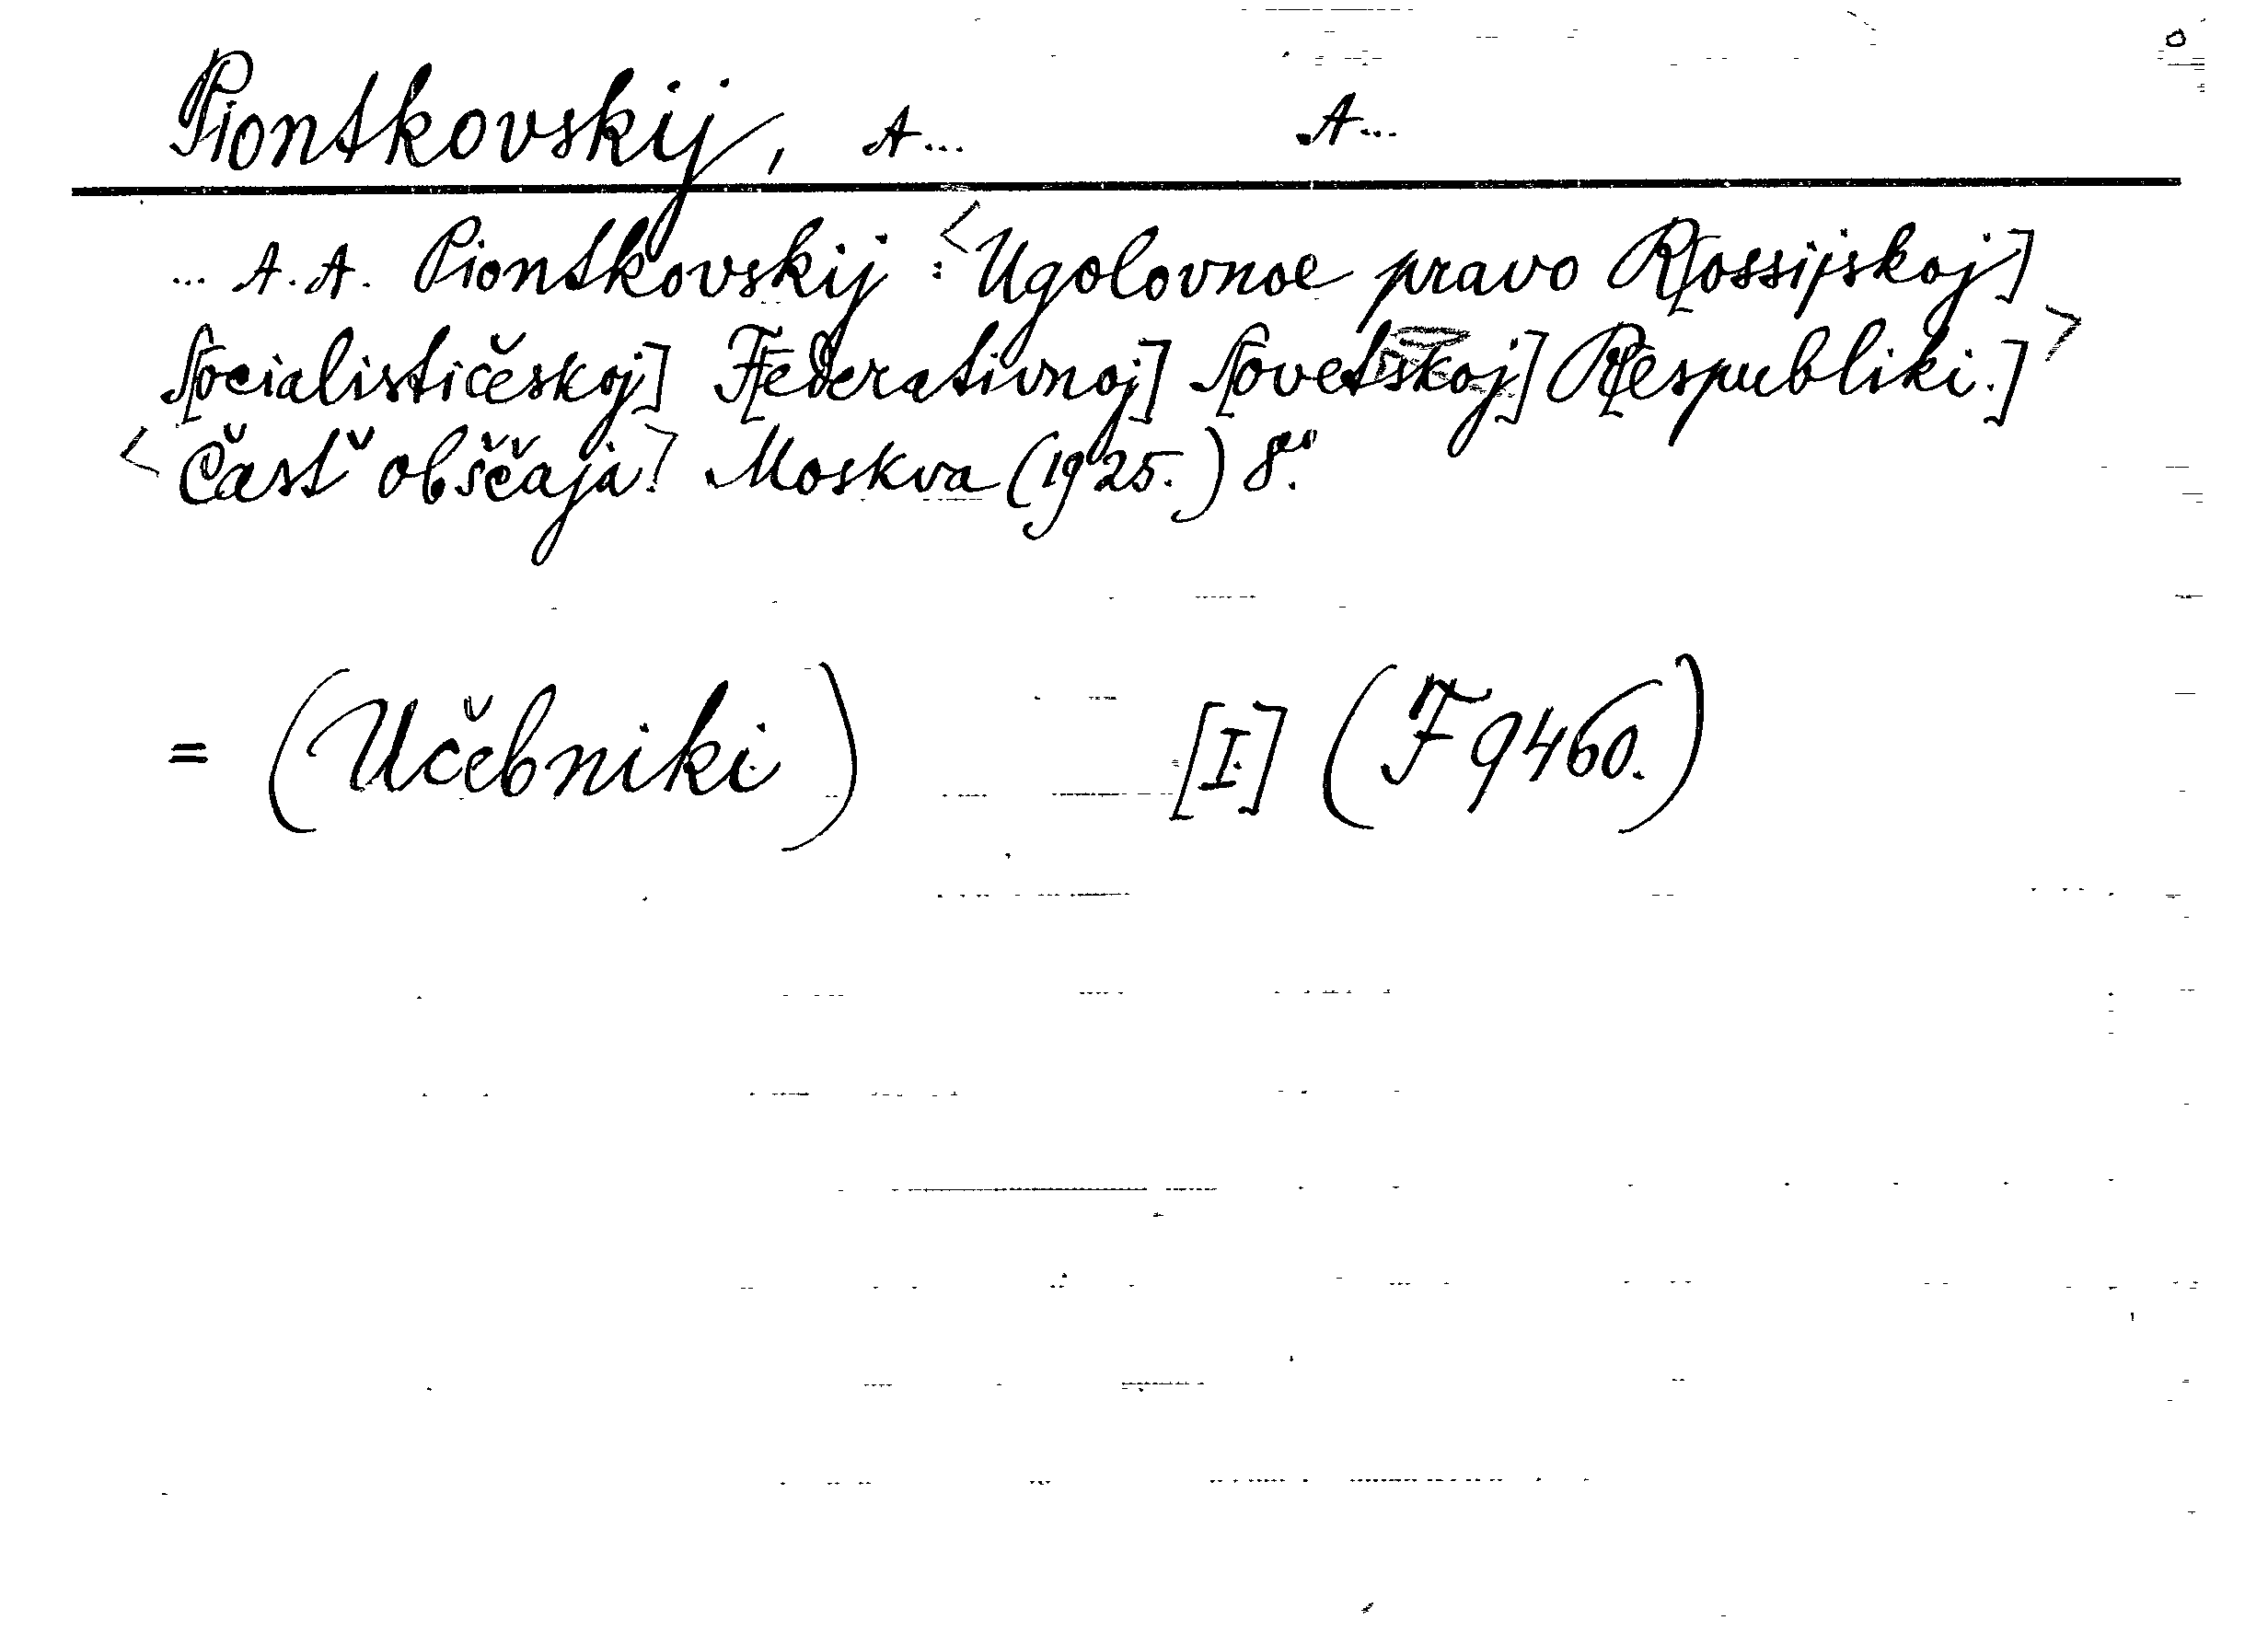 Piontkovskij, A... A...
... A. A. Piontkovskij : <Ugolovnoe pravo R[ossijskoj]
S[ocialističeskoj] F[ederativnoj] S[ovetskoj] R[espubliki.]>
<Častˇ obščaja.> Moskva (1925.) 8°.
= (Učebniki.) [I.] (F 9460.)